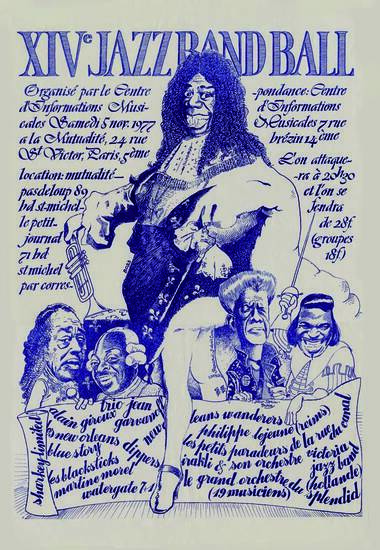 XIVe JAZZ BAND BALL
Organisé par le Centre
d'Informations Musi-
cales Samedi 5 nov. 1977
a la Mutualité, 24 rue
St Victor, Paris, 5ème
location: mutualité-
pasdeloup 89
bd st-michel-
le petit-
journal
71 bd
st michel
par corres-
-pondance: Centre
d'Informations
Musicales 7 rue
brézin 14ème
L'on attaque-
ra à 20h30
et l'on se
fendra
de 28f.
(groupes
18f.)
sharkey limited
alain girous
trio jean
les new orleans
blue story
new
dippers
les blacksticks
martine morel
watergate 7+1
leans wanderers
(reims)
philippe lejeune
les petits paradeurs de la rue du canal
irakli & son orchestre
victoria
jazz band
(hollande)
le grand orchestre du splendid
(19 musiciens)